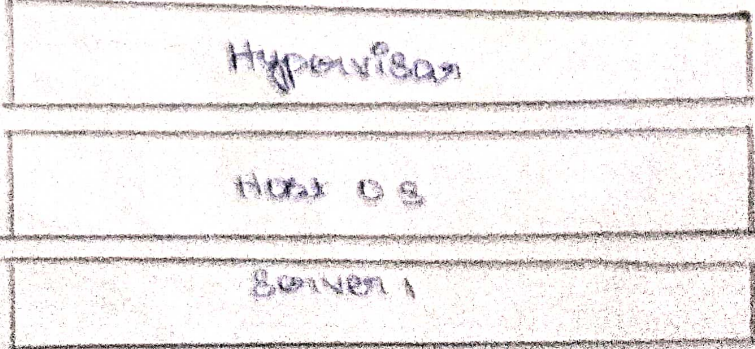 Hypervisor
Host OS
Server